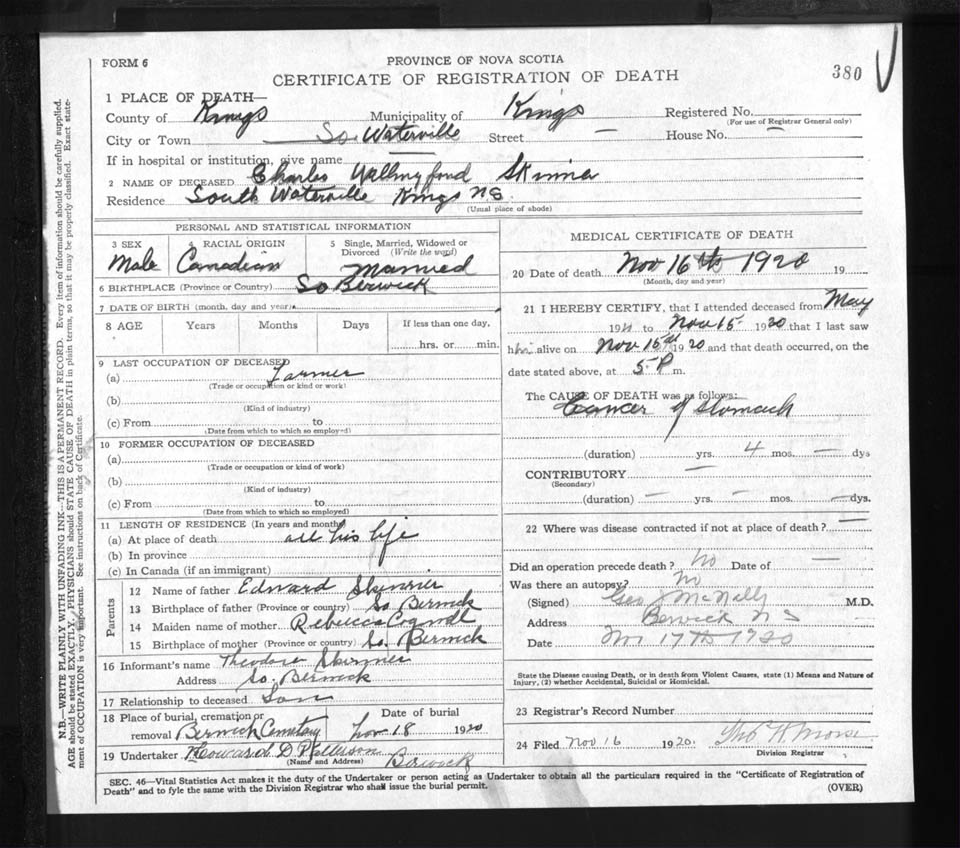 FORM 6
PROVINCE OF NOVA SCOTIA
380
CERTIFICATE OF REGISTRATION OF DEATH
1 PLACE OF DEATH—
County of Kings Municipality of Kings Registered No.
(For use of Registrar General only)
City or Town So. Waterville Street — House No. —
If in hospital or institution, give name
2 NAME OF DECEASED Charles Skinner
Residence South Waterville Kings N.S.
(Usual place of abode)
PERSONAL AND STATISTICAL INFORMATION
3 SEX 4 RACIAL ORIGIN 5 Single, Married, Widowed or Divorced (Write the word)
Male Canadian Married
6 BIRTHPLACE (Province or Country) So Berwick
7 DATE OF BIRTH (month, day and year)
8 AGE Years Months Days If less than one day,
hrs. or min.
9 LAST OCCUPATION OF DECEASED
(a) Farmer
(Trade or occupation or kind or work)
(b)
(Kind of industry)
(c) From to
(Date from which to which so employed)
10 FORMER OCCUPATION OF DECEASED
(a)
(Trade or occupation or kind of work)
(b)
(Kind of industry)
(c) From to
(Date from which to which so employed)
11 LENGTH OF RESIDENCE (In years and months)
(a) At place of death all his life
(b) In province
(c) In Canada (if an immigrant)
Parents
12 Name of father Edward Skinner
13 Birthplace of father (Province or country) So Berwick
14 Maiden name of mother Rebecca
15 Birthplace of mother (Province or country) So. Berwick
16 Informant's name Theodore Skinner
Address So. Berwick
17 Relationship to deceased Son
18 Place of burial, cremation or removal Berwick Cemetary Date of burial Nov 18 1920
19 Undertaker Howard D Patterson Berwick
(Name and Address)
MEDICAL CERTIFICATE OF DEATH
20 Date of death Nov 16th 1920 19
(Month, day and year)
21 I HEREBY CERTIFY, that I attended deceased from May
19 to Nov 15 1920 that I last saw
him alive on Nov 15th 1920 and that death occurred, on the
date stated above, at 5 P m.
The CAUSE OF DEATH was as follows:
Cancer of Stomach
(duration) yrs. 4 mos. — dys
CONTRIBUTORY —
(Secondary)
(duration) — yrs. — mos. — dys.
22 Where was disease contracted if not at place of death? —
Did an operation precede death? No Date of —
Was there an autopsy? No
(Signed) Geo J McNally M.D.
Address Berwick N S
Date Nov 17th 1920
State the Disease causing Death, or in death from Violent Causes, state (1) Means and Nature of
Injury, (2) whether Accidental, Suicidal or Homicidal.
23 Registrar's Record Number
24 Filed Nov 16 1920. Morse
Division Registrar
SEC. 46—Vital Statistics Act makes it the duty of the Undertaker or person acting as Undertaker to obtain all the particulars required in the "Certificate of Registration of
Death" and to fyle the same with the Division Registrar who shall issue the burial permit.
(OVER)
N.B.—WRITE PLAINLY WITH UNFADING INK—THIS IS A PERMANENT RECORD. Every item of information should be carefully supplied.
AGE should be stated EXACTLY. PHYSICIANS should STATE CAUSE OF DEATH in plain terms, so that it may be properly classified. Exact statement of OCCUPATION is very important. See instructions on back of Certificate.